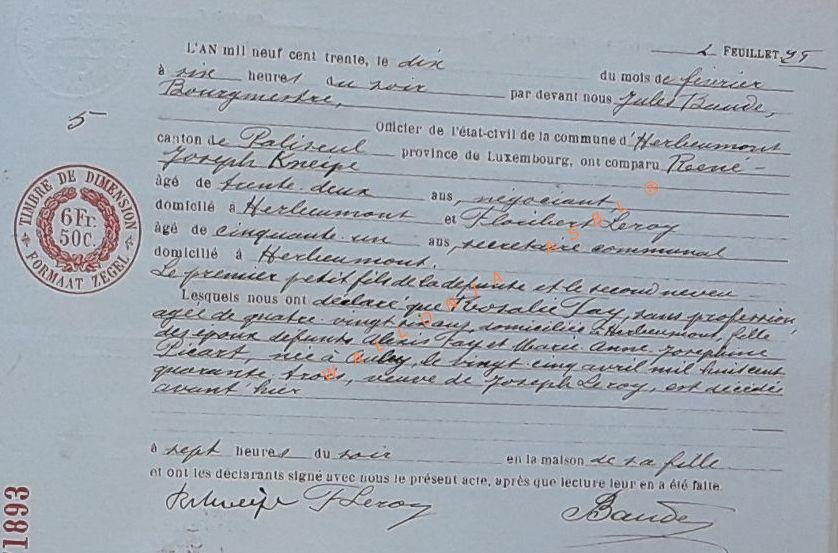 L'AN mil neuf cent trente, le dix
FEUILLET 25
du mois de février
à six heures du soir par devant nous Jules Baude,
Bourgmestre,
5
Officier de l'état-civil de la commune d'Herbeumont
canton de Paliseul province de Luxembourg, ont comparu René-
Joseph Kneipe
âgé de trente-deux ans, négociant
domicilié à Herbeumont et Floribert Leroy
âgé de cinquante-un ans, secrétaire communal
domicilié à Herbeumont.
Le premier petit fils de la défunte et le second neveu
Lesquels nous ont déclaré que Rosalie Tay, sans profession,
agée de quatre vingt six ans domiciliée à Herbeumont, fille
des époux défunts Alexis Tay et Marie Anne Josephine
Picart, née à Auby, le vingt cinq avril mil huit cent
quarante trois, veuve de Joseph Leroy, est décédée
avant hier
à sept heures du soir en la maison de sa fille
et ont les déclarants signé avec nous le présent acte, après que lecture leur en a été faite.
RKneipe FLeroy Baude
TIMBRE DE DIMENSION
6Fr.
50C.
FORMAAT ZEGEL
1893
WALLONIA ASBL ©